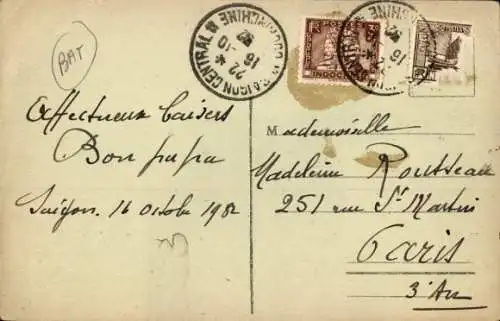 BAT
SAIGON CENTRAL
COCHINCHINE
22 *
16 -10
32
INDOCHINE
Affectueux baisers
Bon papa
Saïgon 16 octobe 1932
Mademoiselle
Madeleine Rousseau
251 rue St Martin
Paris
3e Arr